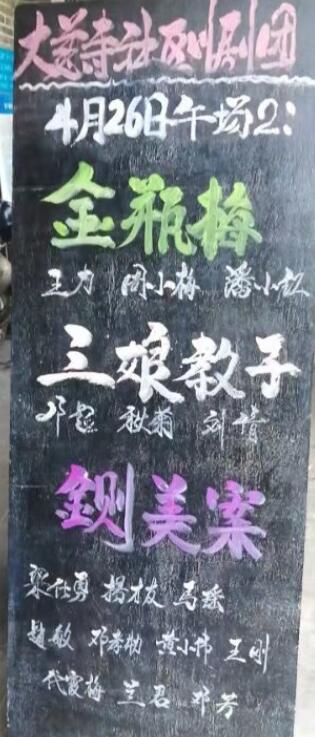 大慈寺社区川剧团
4月26日午场2:
金瓶梅
王力 周小梅 潘小红
三娘教子
邓超 秋菊 刘青
鍘美案
梁仕勇 杨才友 马瑶
赵敏 邓孝勤 黄小伟 王刚
代霞梅 兰君 邓芳